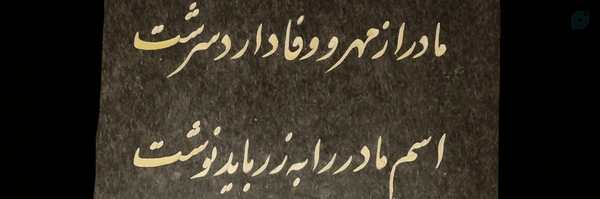 مادر از مهر و وفا دارد سرشت
اسم مادر را به زر باید نوشت